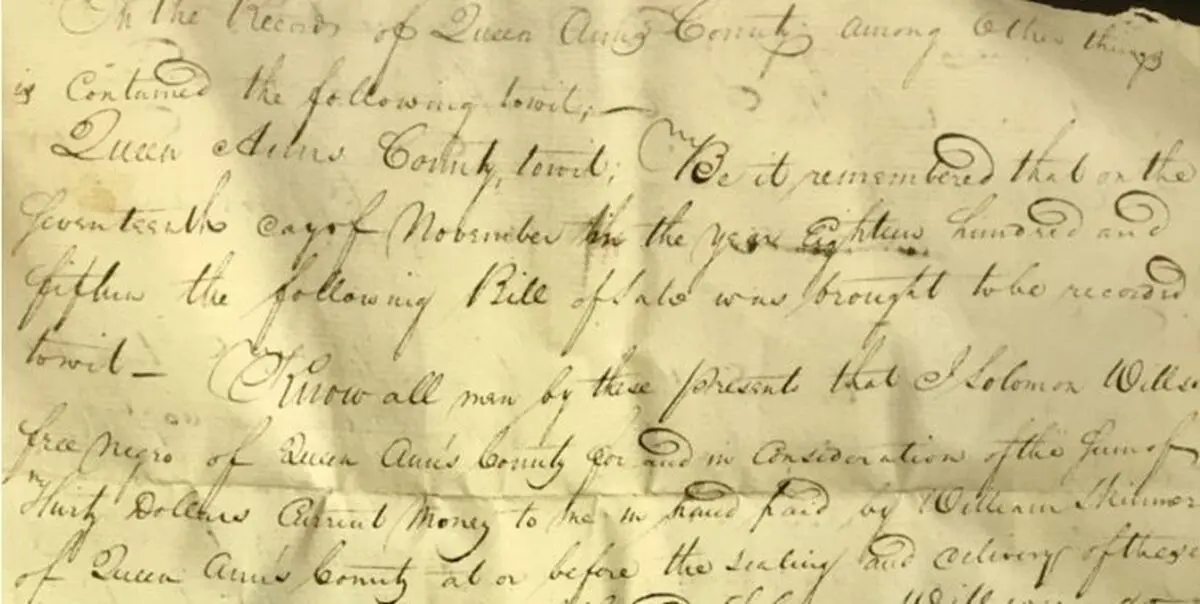 In the Records of Queen Anns County among Other things
is Contained the following towit;
Queen Anns County, towit; Be it remembered that on the
Seventeenth day of November in the year Eighteen hundred and
fifteen the following Bill of Sale was brought to be recorded
towit— Know all men by these presents that I Solomon
free Negro of Queen Ann's County for and in Consideration of the Sum of
Thirty Dollars Current Money to me in hand paid by William Skinner
of Queen Ann's County at or before the sealing and delivery of these